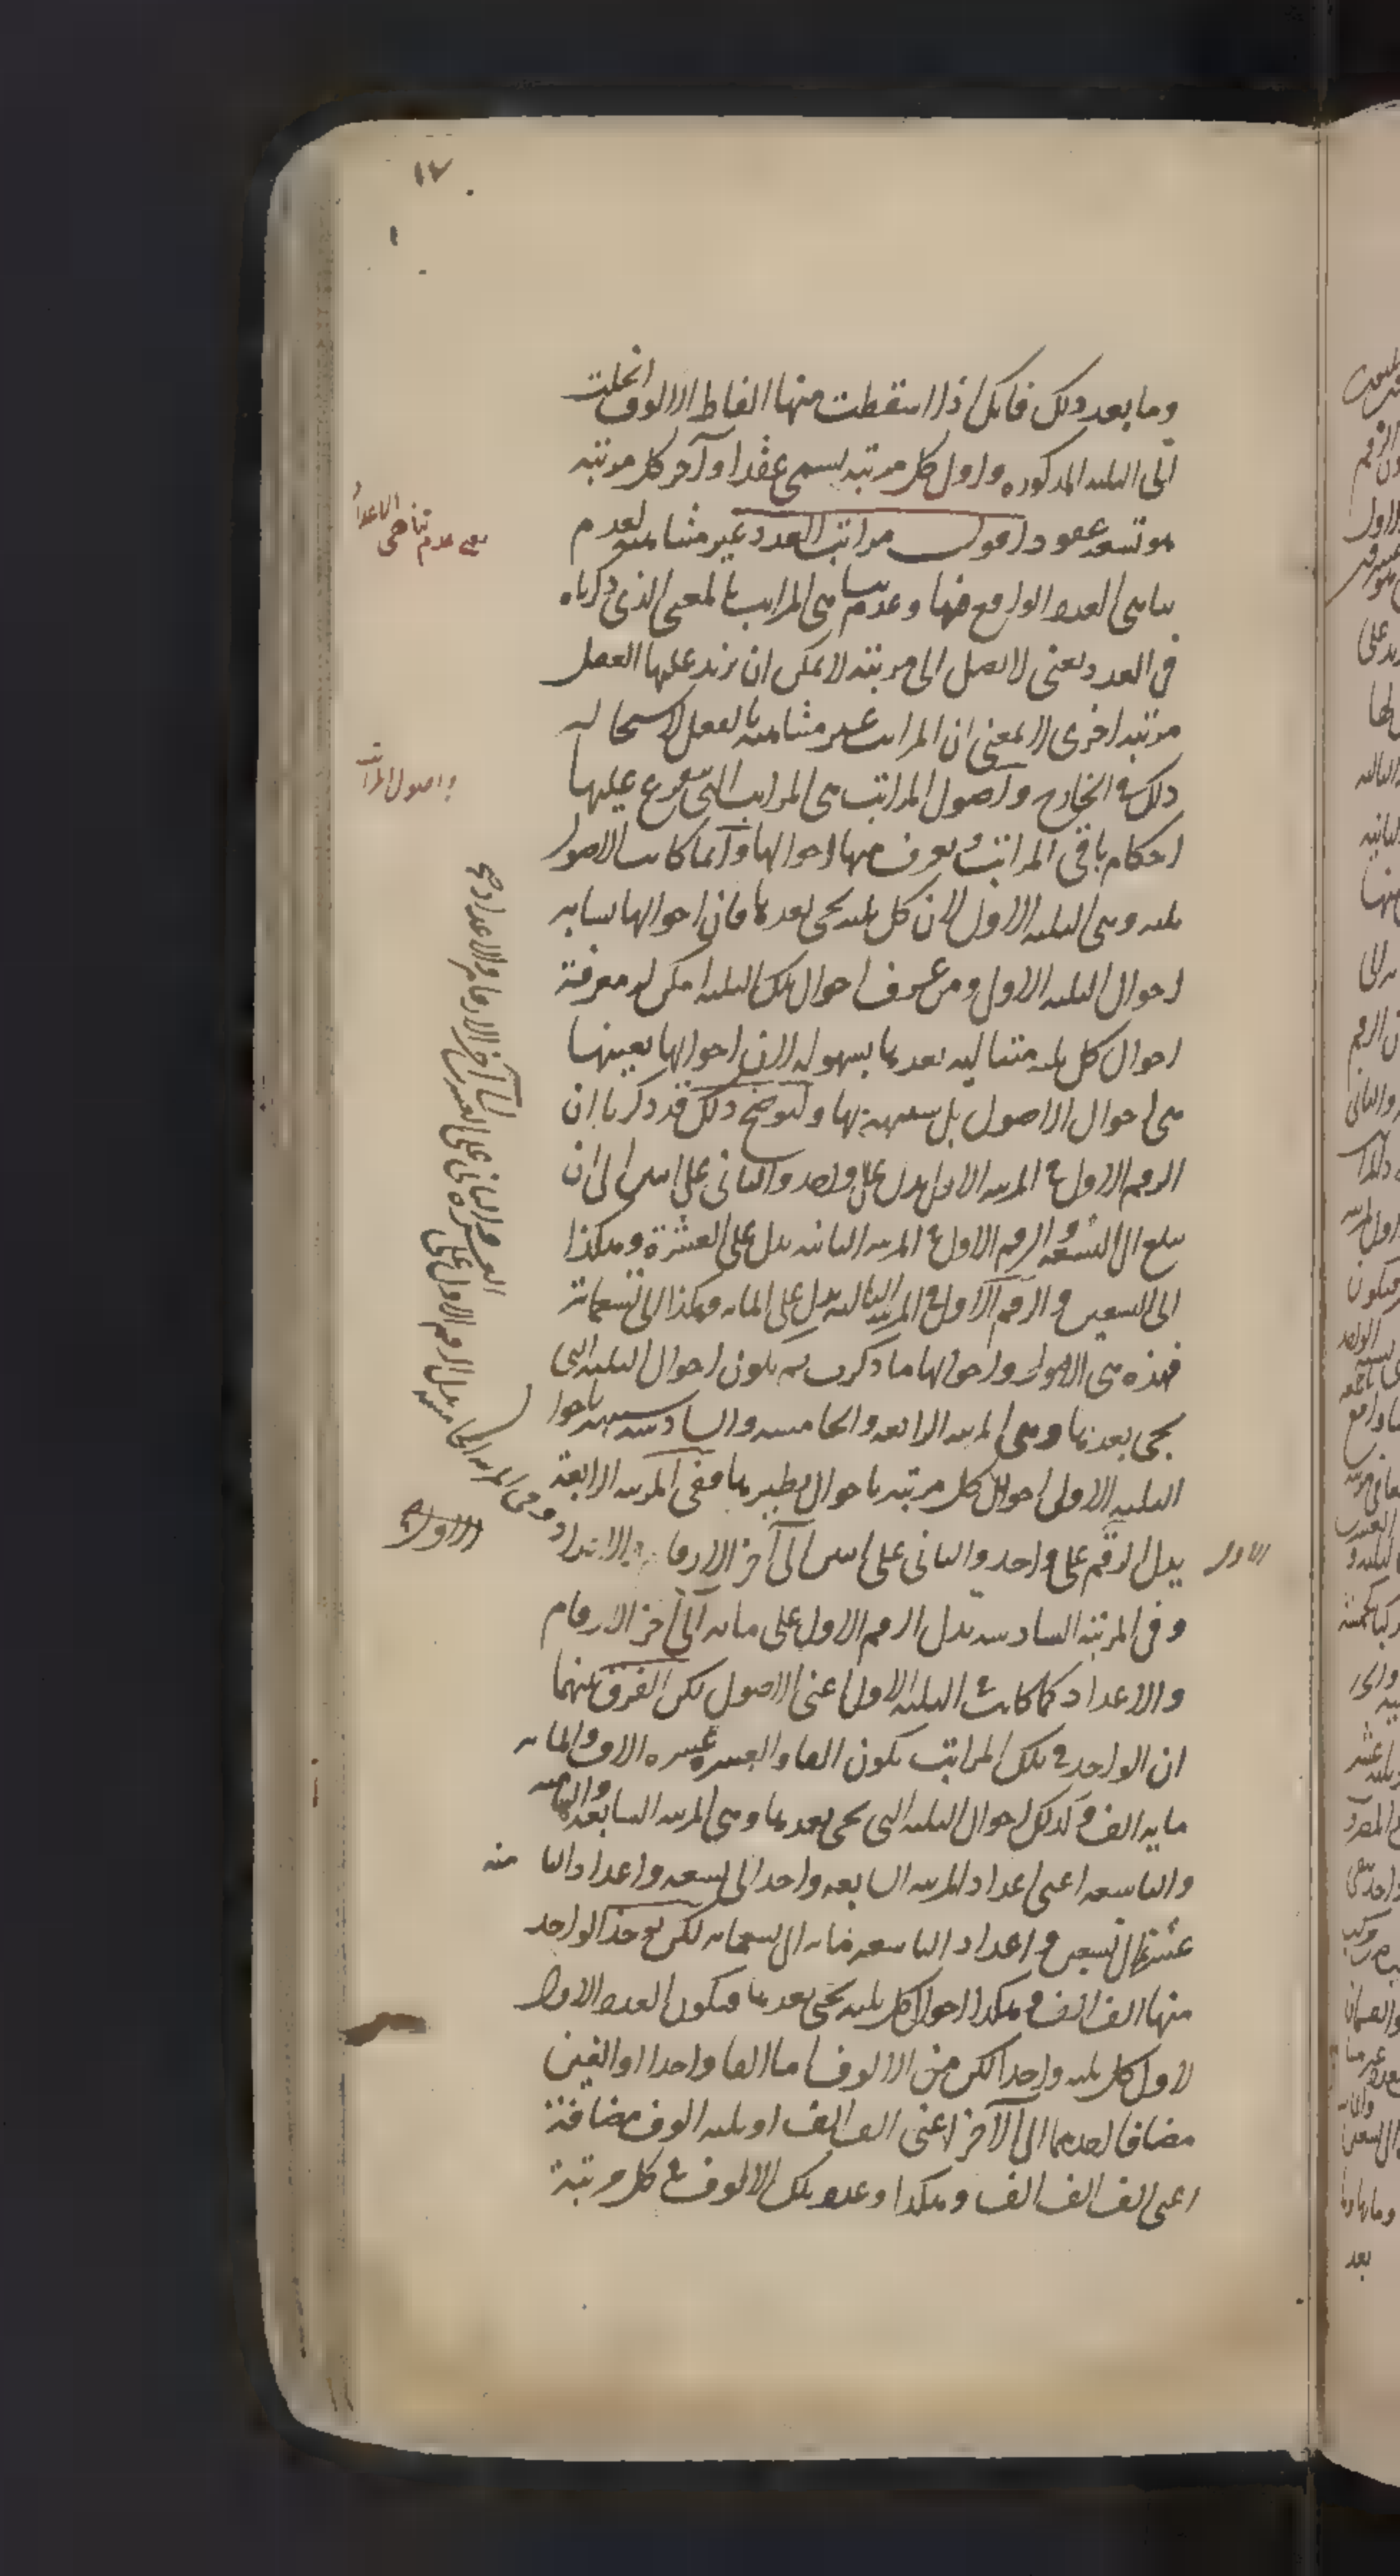 ١٧
وما بعد ذلك فانك اذا اسقطت منها الفاظ الالوف انحلت
الى الثلثه المذكوره واول كل مرتبه يسمى عقدا وآخر كل مرتبه
هو تسعه عقود اقول مراتب العدد غير متناهيه لعدم
تناهى العدد الواقع فيها وعدم تناهى المراتب بالمعنى الذى ذكرناه
فى العدد يعنى لا يصل الى مرتبه لا يمكن ان يزيد عليها العقل
مرتبه اخرى لا بمعنى ان المراتب غير متناهيه بالفعل لاستحاله
ذلك فى الخارج واصول المراتب هى المراتب التى يتفرع عليها
احكام باقى المراتب ويعرف منها احوالها وانما كانت الاصول
ثلثه وهى الثلثه الاول لان كل ثلثه يجى بعدها فان احوالها يشابه
احوال الثلثه الاول ومن عرف احوال تلك الثلثه امكن له معرفة
احوال كل ثلثه متتاليه بعدها بسهوله لان احوالها بعينها
هى احوال الاصول بل شبيهة بها ولتوضح ذلك قد ذكرنا ان
الرقم الاول فى المرتبه الاولى يدل على واحد والثانى على اثنين الى ان
يبلغ الى التسعه والرقم الاول فى المرتبه الثانيه يدل على العشرة وهكذا
الى التسعين والرقم الاول فى المرتبه الثالثه يدل على المائه وهكذا الى تسعمائة
فهذه هى الاصول واحوالها ما ذكرت ثم يكون احوال الثلثه التى
يجى بعدها وهى المرتبه الرابعه والخامسه والسادسه شبيهه باحوال
الثلثه الاولى احوال كل مرتبه باحوال نظيرها ففى المرتبه الرابعة
يدل الرقم الاول على واحد والثانى على اثنين الى آخر الارقام والاعداد
وفى المرتبه الخامسه يدل الرقم الاول على
العشره والثانى على العشرين الى آخر الارقام والاعداد
وفى المرتبه السادسه يدل الرقم الاول على مائه الى آخر الارقام
والاعداد كما كانت فى الثلثه الاولى اعنى الاصول لكن الفرق بينهما
ان الواحد فى تلك المراتب يكون الفا والعشره عشره الاف والمائه
مايه الف وكذلك احوال الثلثه التى يجى بعدها وهى المرتبه السابعه والثامنه
والتاسعه اعنى اعداد المرتبه السابعه واحد الى تسعه واعداد الثامنه
عشرة الى تسعين واعداد التاسعه مائه الى تسعمائه لكن يوخذ الواحد
منها الف الف وهكذا احوال كل ثلثه يجى بعدها فيكون العدد الاول
لاول كل ثلثه واحدا لكن من الالوف اما الفا واحدا او الفين
مضافا احدهما الى الآخر اعنى الف الف او ثلثه الوف مضافة
اعنى الف الف الف وهكذا وعدد تلك الالوف فى كل مرتبة
معنى عدم تناهى الاعداد
واصول المراتب